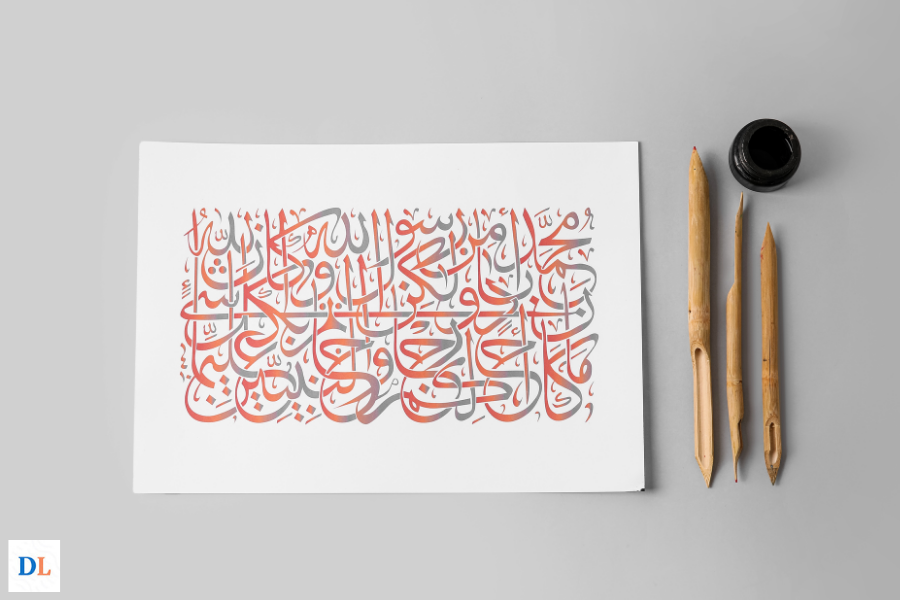 ما كان محمد أبا أحد من رجالكم ولكن رسول الله وخاتم النبيين وكان الله بكل شيء عليما
DL